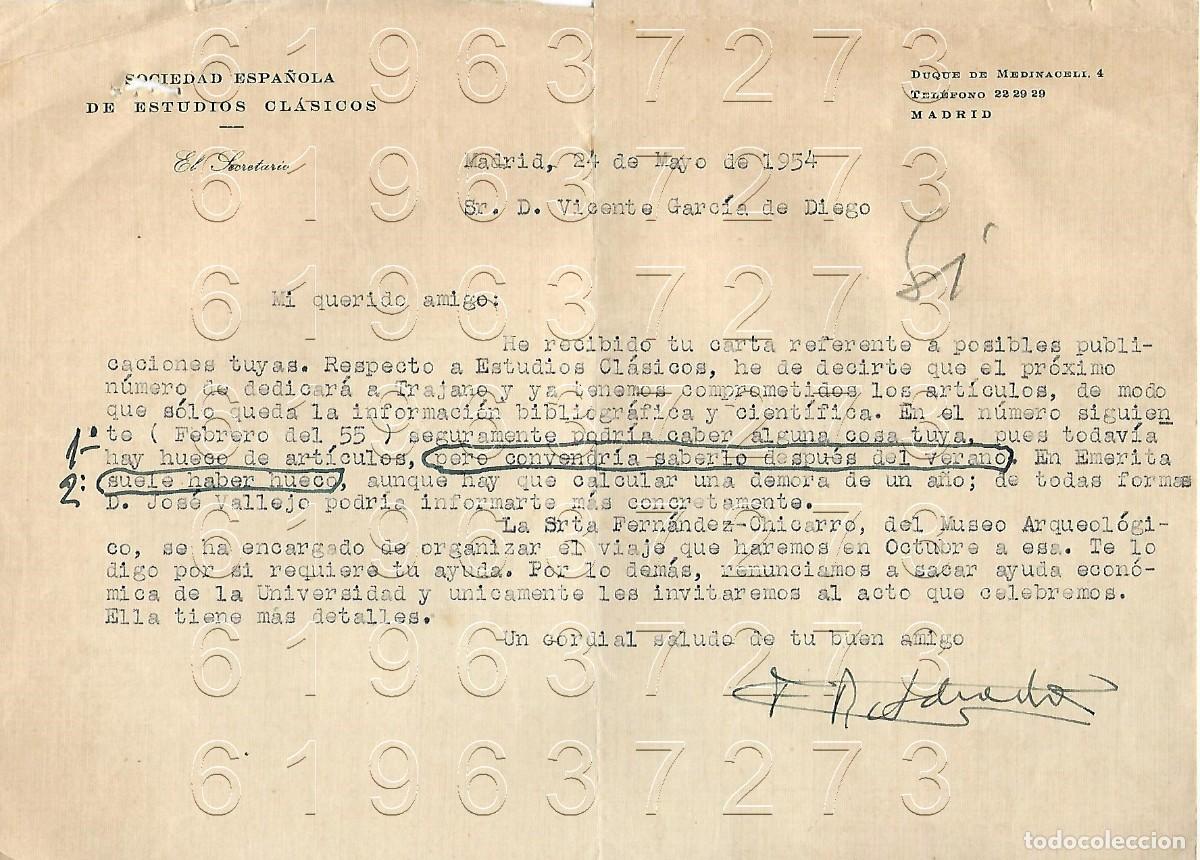 SOCIEDAD ESPAÑOLA
DE ESTUDIOS CLÁSICOS
El Secretario
DUQUE DE MEDINACELI, 4
TELÉFONO 22 29 29
MADRID
Madrid, 24 de Mayo de 1954
Sr. D. Vicente García de Diego
Sí
Mi querido amigo:
He recibido tu carta referente a posibles publi-
caciones tuyas. Respecto a Estudios Clásicos, he de decirte que el próximo
número de dedicará a Trajano y ya tenemos comprometidos los artículos, de modo
que sólo queda la información bibliográfica y científica. En el número siguien
te ( Febrero del 55 ) seguramente podría caber alguna cosa tuya, pues todavía
1º hay hueco de artículos, pero convendría saberlo después del verano. En Emerita
2: suele haber hueco, aunque hay que calcular una demora de un año; de todas formas
D. José Vallejo podría informarte más concretamente.
La Srta Fernández-Chicarro, del Museo Arqueológi-
co, se ha encargado de organizar el viaje que haremos en Octubre a esa. Te lo
digo por si requiere tu ayuda. Por lo demás, renunciamos a sacar ayuda econó-
mica de la Universidad y unicamente les invitaremos al acto que celebremos.
Ella tiene más detalles.
Un cordial saludo de tu buen amigo
F. R. Adrados
619637273
619637273
619637273
619637273
619637273
619637273
619637273
todocoleccion